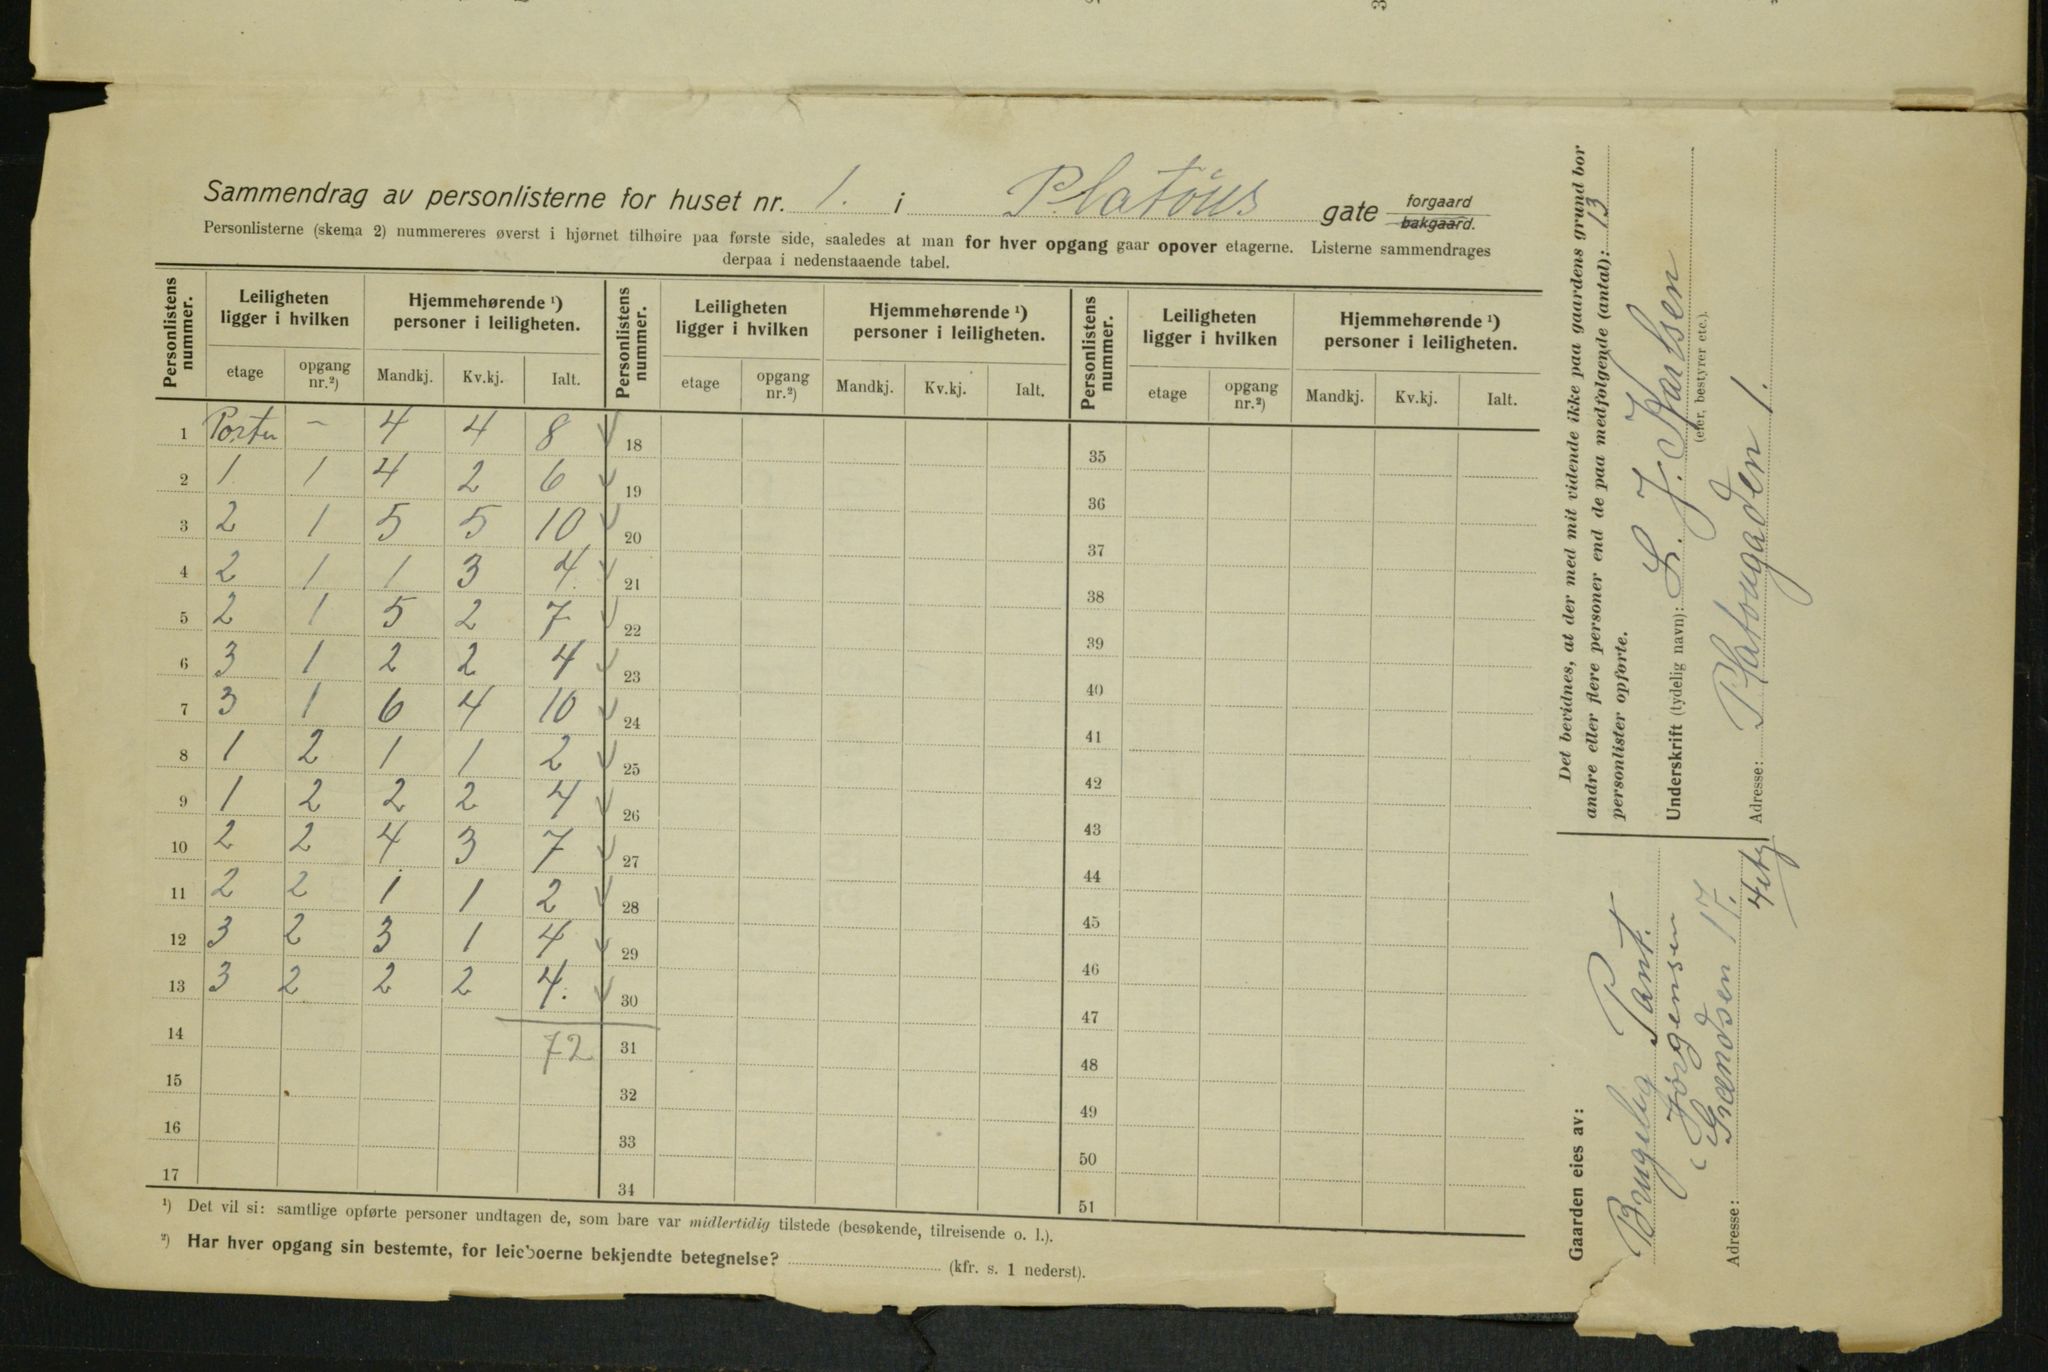 Sammendrag av personlisterne for huset nr. 1. i Platöus gate forgaard
bakgaard.
Personlisterne (skema 2) nummereres øverst i hjørnet tilhøire paa første side, saaledes at man for hver opgang gaar opover etagerne. Listerne sammendrages
derpaa i nedenstaaende tabel.
Personlistens nummer. Leiligheten ligger i hvilken Hjemmehørende ¹) personer i leiligheten. Personlistens nummer. Leiligheten ligger i hvilken Hjemmehørende ¹) personer i leiligheten. Personlistens nummer. Leiligheten ligger i hvilken Hjemmehørende ¹) personer i leiligheten.
etage opgang nr.²) Mandkj. Kv.kj. Ialt. etage opgang nr.²) Mandkj. Kv.kj. Ialt. etage opgang nr.²) Mandkj. Kv.kj. Ialt.
1 – 4 4 8 18 35
2 1 1 4 2 6 19 36
3 2 1 5 5 10 20 37
4 2 1 1 3 4 21 38
5 2 1 5 2 7 22 39
6 3 1 2 2 4 23 40
7 3 1 6 4 10 24 41
8 1 2 1 1 2 25 42
9 1 2 2 2 4 26 43
10 2 2 4 3 7 27 44
11 2 2 1 1 2 28 45
12 3 2 3 1 4 29 46
13 3 2 2 2 4. 30 47
14 72 31 48
15 32 49
16 33 50
17 34 51
¹) Det vil si: samtlige opførte personer undtagen de, som bare var midlertidig tilstede (besøkende, tilreisende o. l.).
²) Har hver opgang sin bestemte, for leieboerne bekjendte betegnelse? (kfr. s. 1 nederst).
Det bevidnes, at der med mit vidende ikke paa gaardens grund bor
andre eller flere personer end de paa medfølgende (antal): 13
personlister opførte.
Underskrift (tydelig navn): L. J. Karlsen
(eier, bestyrer etc.).
Adresse: Platougaden 1.
Gaarden eies av:
Pant.
Jørgensen
Adresse: 17.
4 etg